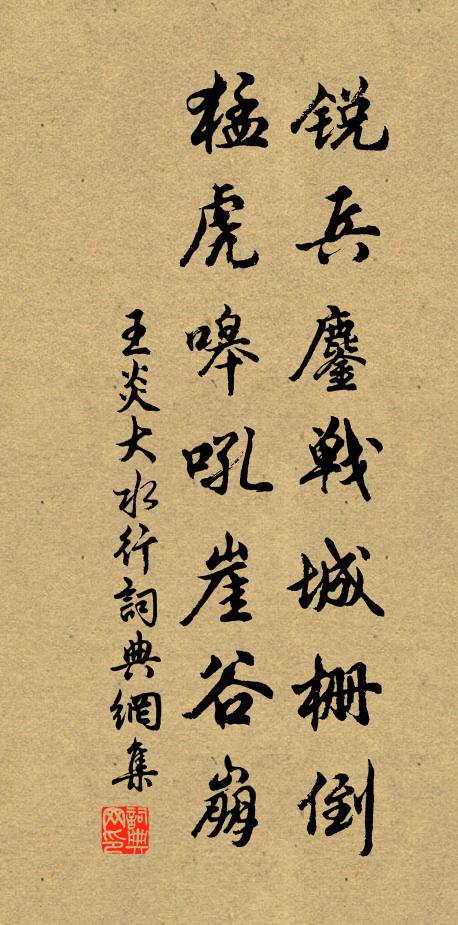 锐兵鏖戰城栅倒
猛虎嗥吼崖谷崩
王炎大水行詞典網集
詞典网印